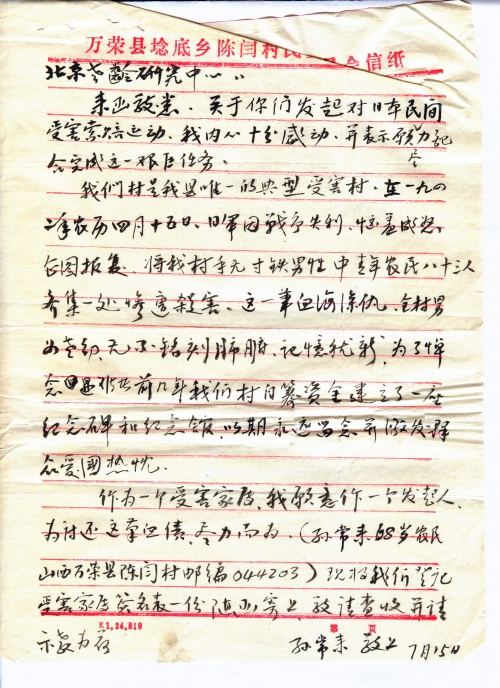 万荣县埝底乡陈闫村民 会信纸
北京老龄研究中心：
来函敬悉、关于你们发起对日本民间
受害索赔运动、我内心十分感动、并表示愿尽力配
合完成这一艰巨任务。
我们村是我县唯一的典型受害村，在一九四
二年农历四月十五日、日军因战争失利、恼羞成怒、
企图报复、将我村手无寸铁男性中青年农民八十三人
齐集一处惨遭杀害、这一笔血海深仇、全村男
女老幼、无不铭刻肺腑、记憶犹新、为了悼
念 前几年我们村自筹资金建立了一座
纪念碑和纪念馆、以期永远留念并激发群
众爱國热忱．
作为一个受害家属、我愿意作一个发起人、
为讨还这笔血债、尽力而为。（孙常来68岁农民
山西万荣县陈闫村邮编044203）现将我们登记
受害家属签名表一份随函寄上、敬请查收并请
示教为荷
孙常来 敬上 7月15日
K1.24.819 第 页